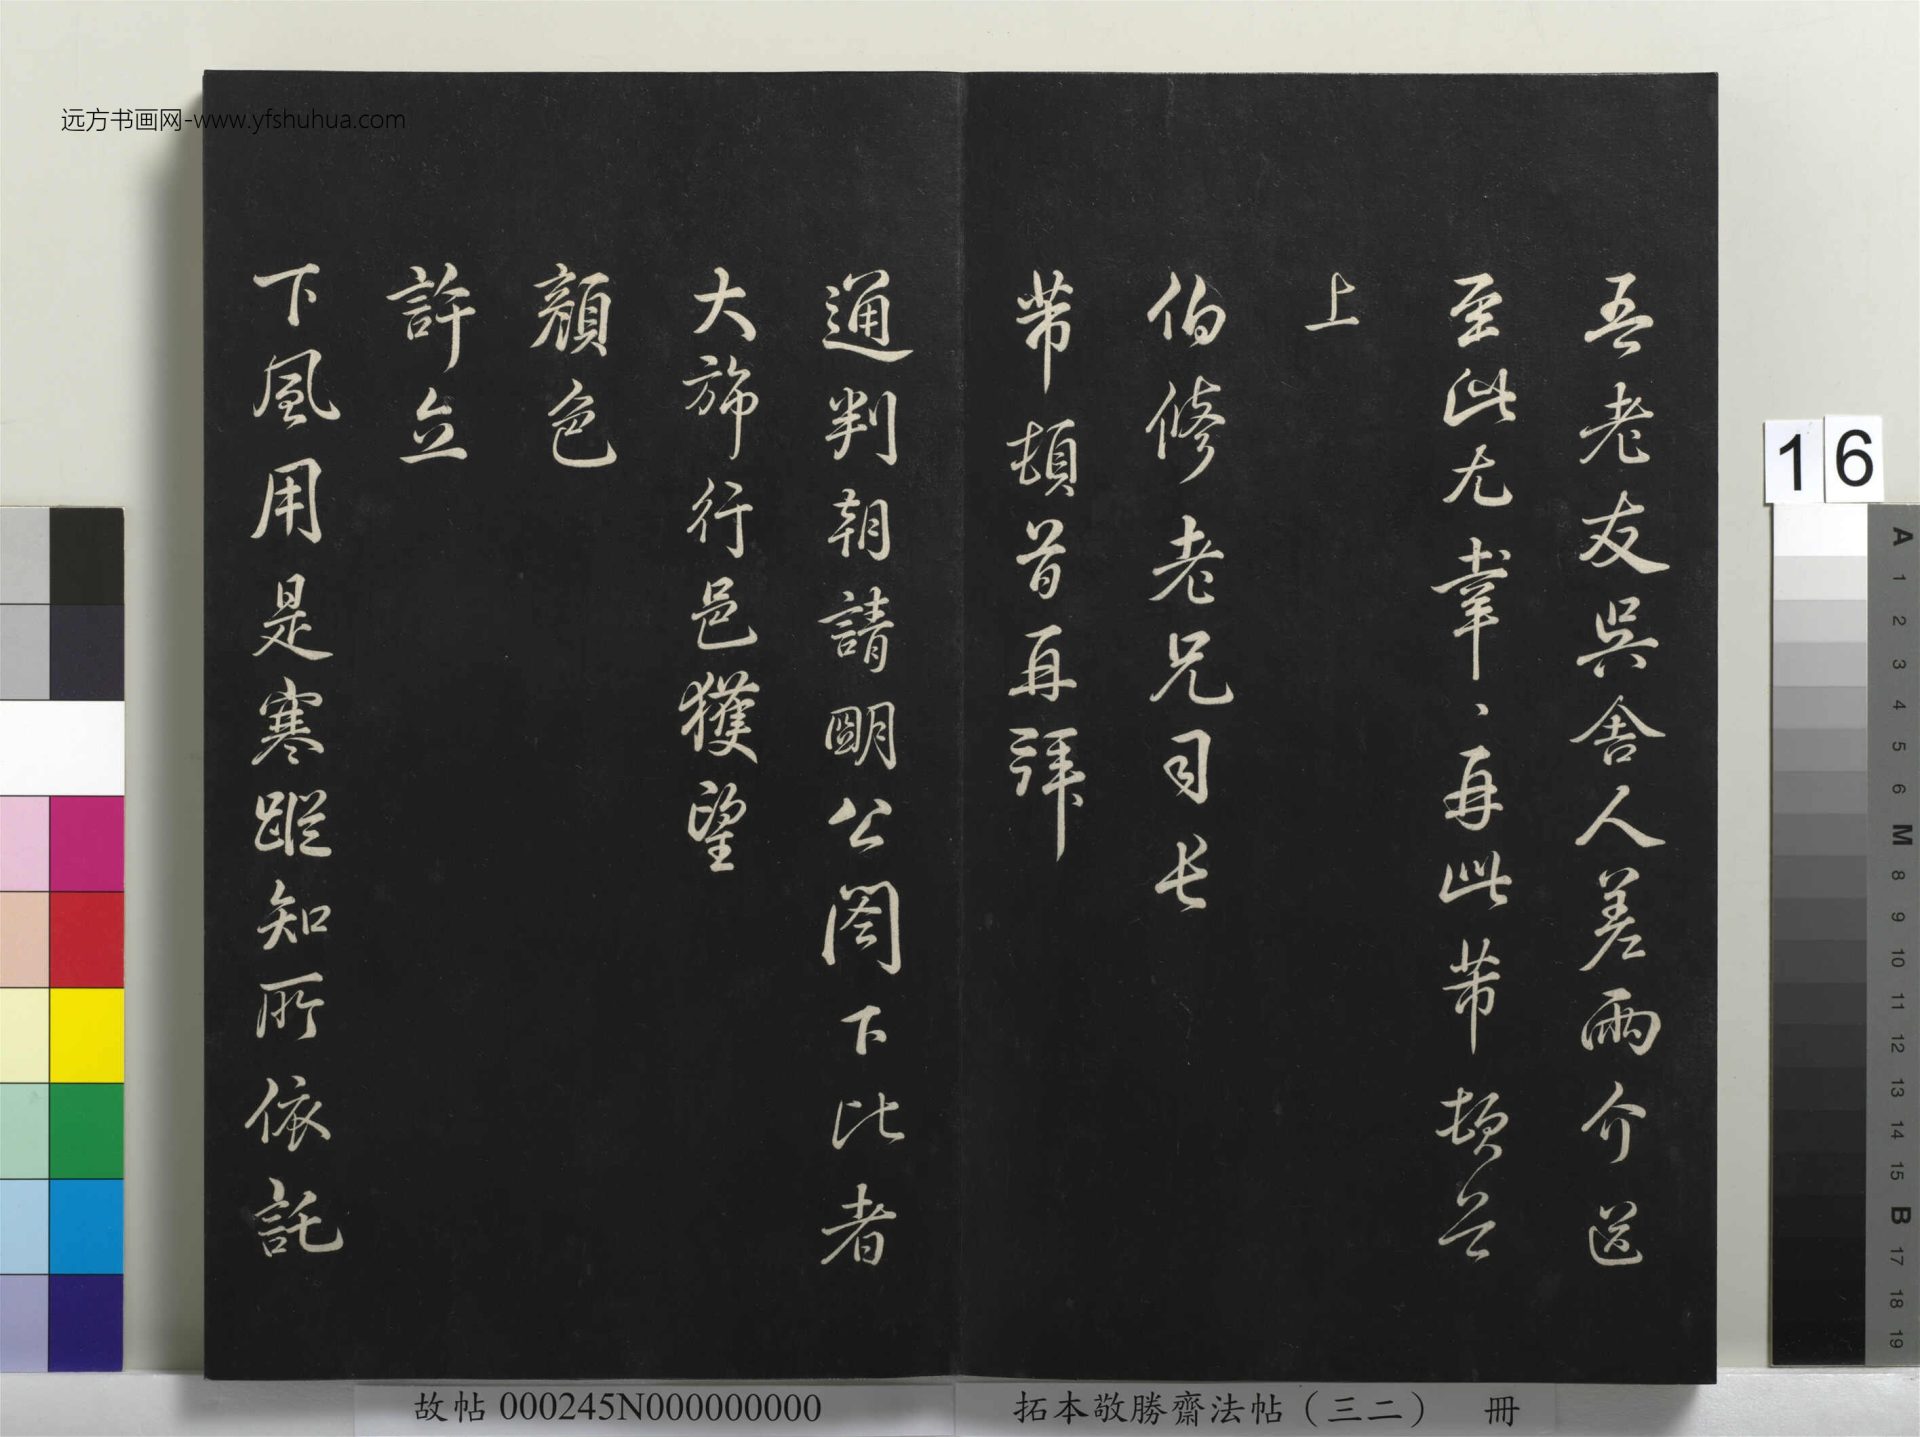 远方书画网-www.yfshuhua.com
吾老友吳舍人差兩介送
至此尤幸、再此芾頓首
上
伯修老兄司長
芾頓首再拜
通判朝請明公閤下比者
大旆行邑獲望
顏色
許立
下風用是寒蹤知所依託
16
故帖 000245N000000000
拓本敬勝齋法帖（三二） 冊
A
1
2
3
4
5
6
M
8
9
10
11
12
13
14
15
B
17
18
19